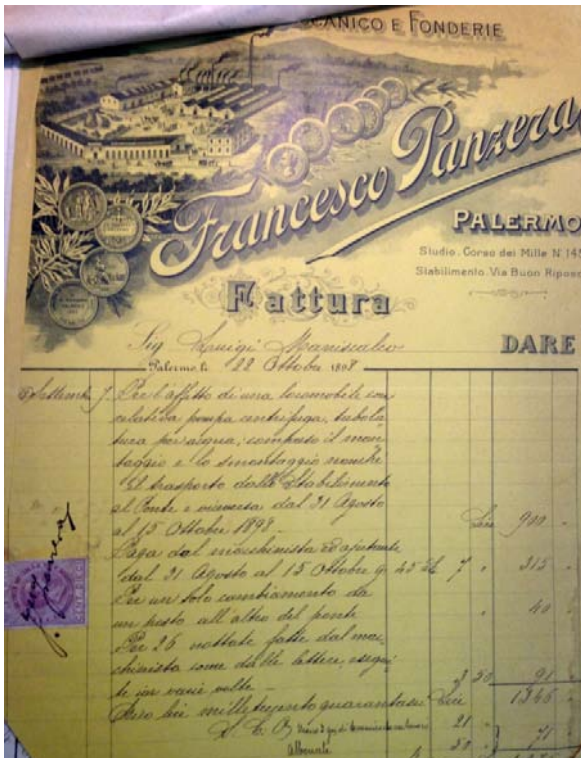 CANICO E FONDERIE
Francesco Panzera
PALERMO
Studio. Corso dei Mille N 145
Stabilimento. Via Buon Riposo
Fattura
Sig Luigi Maniscalco
DARE
Palermo, li 22 Ottobre 1898
Settembre 7 Per l'affitto di una locomobile con
relativa pompa centrifuga, tubola
tura per acqua, compreso il mon
taggio e lo smontaggio nonchè
il trasporto dallo Stabilimento
al Ponte e viceversa dal 31 Agosto
al 15 Ottobre 1898 - Lire 900 "
Paga del macchinista ed ajutante
dal 31 Agosto al 15 Ottobre g. 45 a £ 7 " 315 "
Per un solo cambiamento da
un posto all'altro del ponte " 40 "
Per 26 nottate fatte dal mac
chinista come dalle lettere, esegui
te in varie volte - 3 50 91 "
Dico lire mille trecento quarantasei Lire 1346 "
21 "
Abbonate 50 " 71 "